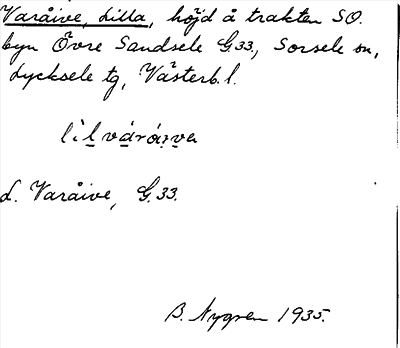 Varåive, Lilla, höjd å trakten SO.
byn Övre Sandsele G.33., Sorsele sn,
Lycksele tg, Västerb. l.
L. Varåive, G.33.
B. Nygren 1935.